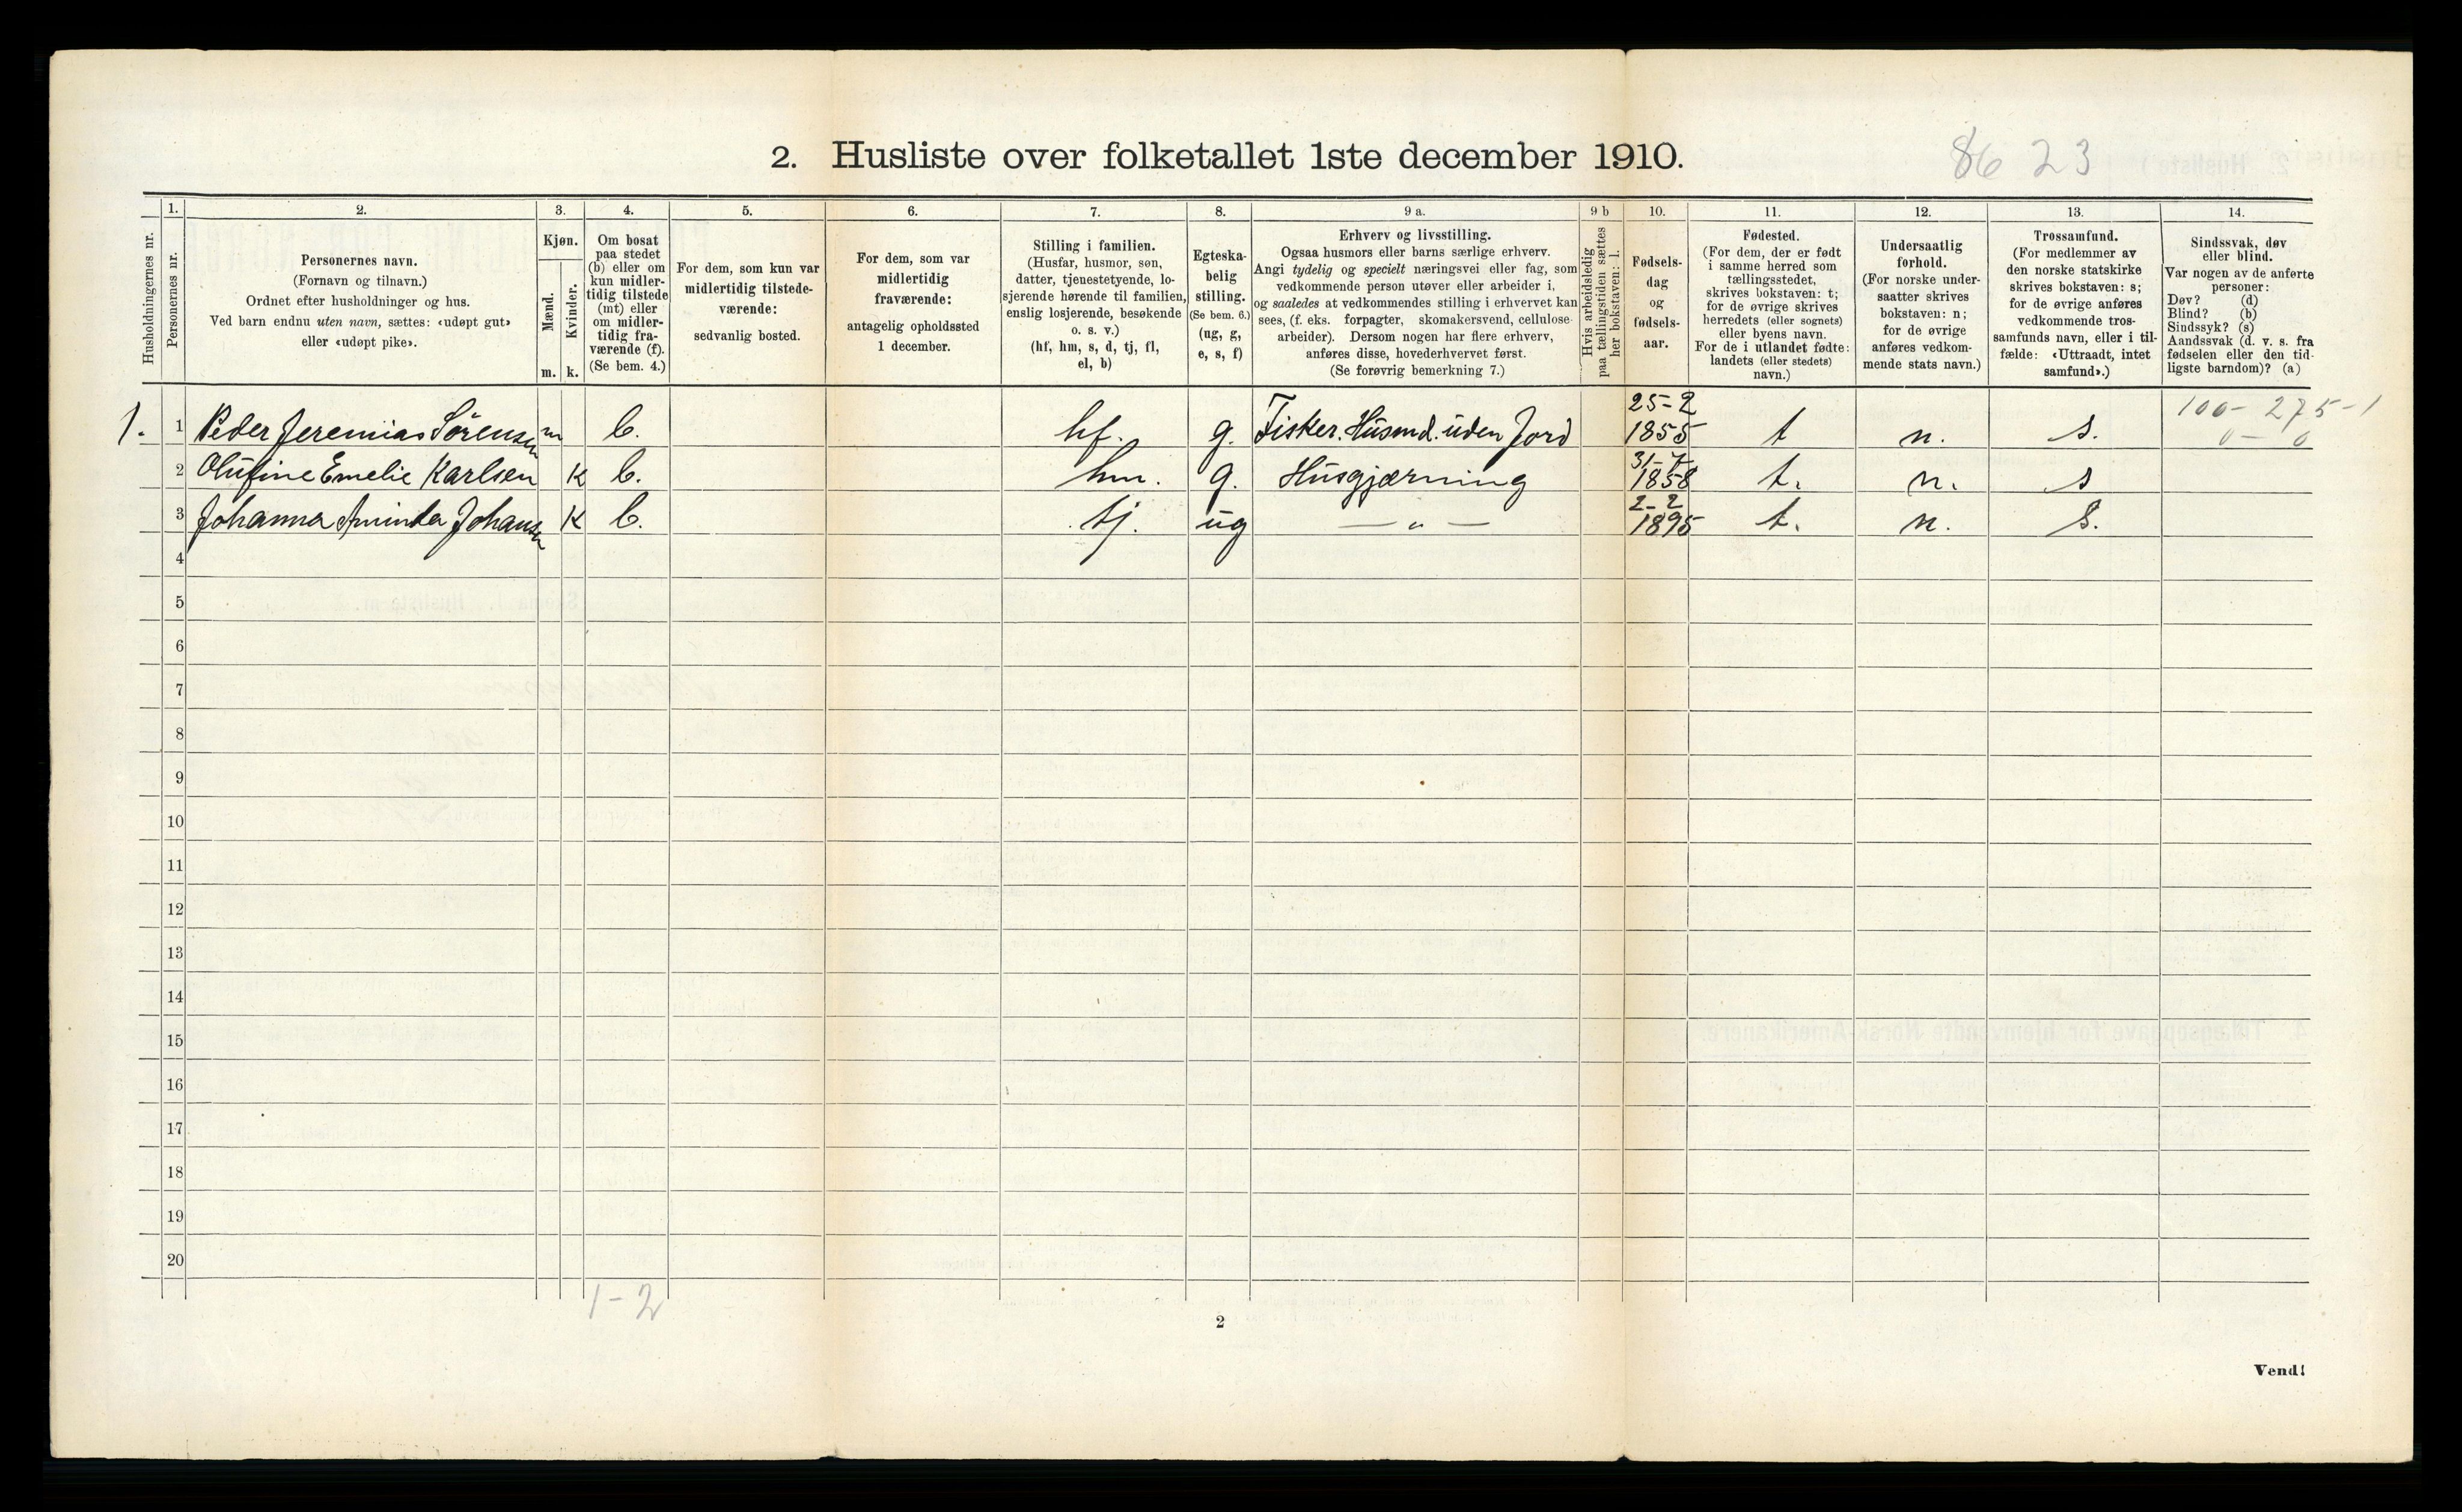 2. Husliste over folketallet 1ste december 1910.
86 23
Husholdningernes nr.
1.
Personernes nr.
2.
Personernes navn.
(Fornavn og tilnavn.)
Ordnet efter husholdninger og hus.
Ved barn endnu uten navn, sættes: «udøpt gut»
eller «udøpt pike».
3.
Kjøn.
Mænd.
m.
Kvinder.
k.
4.
Om bosat
paa stedet
(b) eller om
kun midler-
tidig tilstede
(mt) eller
om midler-
tidig fra-
værende (f).
(Se bem. 4.)
5.
For dem, som kun var
midlertidig tilstede-
værende:
sedvanlig bosted.
6.
For dem, som var
midlertidig
fraværende:
antagelig opholdssted
1 december.
7.
Stilling i familien.
(Husfar, husmor, søn,
datter, tjenestetyende, lo-
sjerende hørende til familien,
enslig losjerende, besøkende
o. s. v.)
(hf, hm, s, d, tj, fl,
el, b)
8.
Egteska-
belig
stilling.
(Se bem. 6.)
(ug, g,
e, s, f)
9 a.
Erhverv og livsstilling.
Ogsaa husmors eller barns særlige erhverv.
Angi tydelig og specielt næringsvei eller fag, som
vedkommende person utøver eller arbeider i,
og saaledes at vedkommendes stilling i erhvervet kan
sees, (f. eks. forpagter, skomakersvend, cellulose-
arbeider). Dersom nogen har flere erhverv,
anføres disse, hovederhvervet først.
(Se forøvrig bemerkning 7.)
9 b
Hvis arbeidsledig
paa tællingstiden sættes
her bokstaven: l.
10.
Fødsels-
dag
og
fødsels-
aar.
11.
Fødested.
(For dem, der er født
i samme herred som
tællingsstedet,
skrives bokstaven: t;
for de øvrige skrives
herredets (eller sognets)
eller byens navn.
For de i utlandet fødte:
landets (eller stedets)
navn.)
12.
Undersaatlig
forhold.
(For norske under-
saatter skrives
bokstaven: n;
for de øvrige
anføres vedkom-
mende stats navn.)
13.
Trossamfund.
(For medlemmer av
den norske statskirke
skrives bokstaven: s;
for de øvrige anføres
vedkommende tros-
samfunds navn, eller i til-
fælde: «Uttraadt, intet
samfund».)
14.
Sindssvak, døv
eller blind.
Var nogen av de anførte
personer:
Døv? (d)
Blind? (b)
Sindssyk? (s)
Aandssvak (d. v. s. fra
fødselen eller den tid-
ligste barndom)? (a)
1. 1 Peder Jeremias Sörensen m b. hf. g. Fisker. Husmd. uden Jord 25-2 1855 t n. s. 100- 275-1
0 — 0
2 Olufine Emelie Karlsen K b. hm. g. Husgjærning 31-7 1858 t. n. s
3 Johanna Aminda Johansen K b. tj. ug — „ — 2-2 1895 t. n. s.
4
5
6
7
8
9
10
11
12
13
14
15
16
17
18
19
20
1-2
2
Vend!